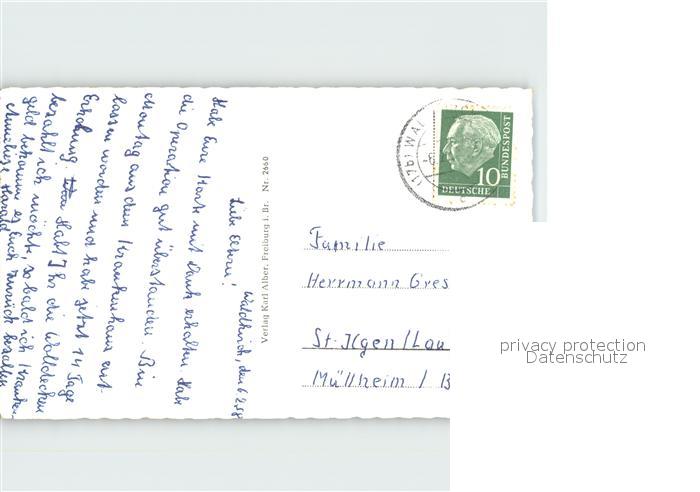 Waldkirch, den 6.2.58
Liebe Eltern!
Habe Eure Karte mit Dank erhalten Habe
die Operation gut überstanden. Bin
Montag aus dem Krankenhaus ent-
lassen worden und habe jetzt 14 Tage
Erholung. Habt Ihr die Wolldecken
bezahlt ich möchte, sobald ich Kranken-
geld bekomme es Euch zurück bezahlen
Harald
Verlag Karl Alber, Freiburg i. Br. Nr. 2660
(17b) WAL
DEUTSCHE
BUNDESPOST
10
Familie
Herrmann Gres
St. Ilgen / Lau
Müllheim / B
privacy protection
Datenschutz